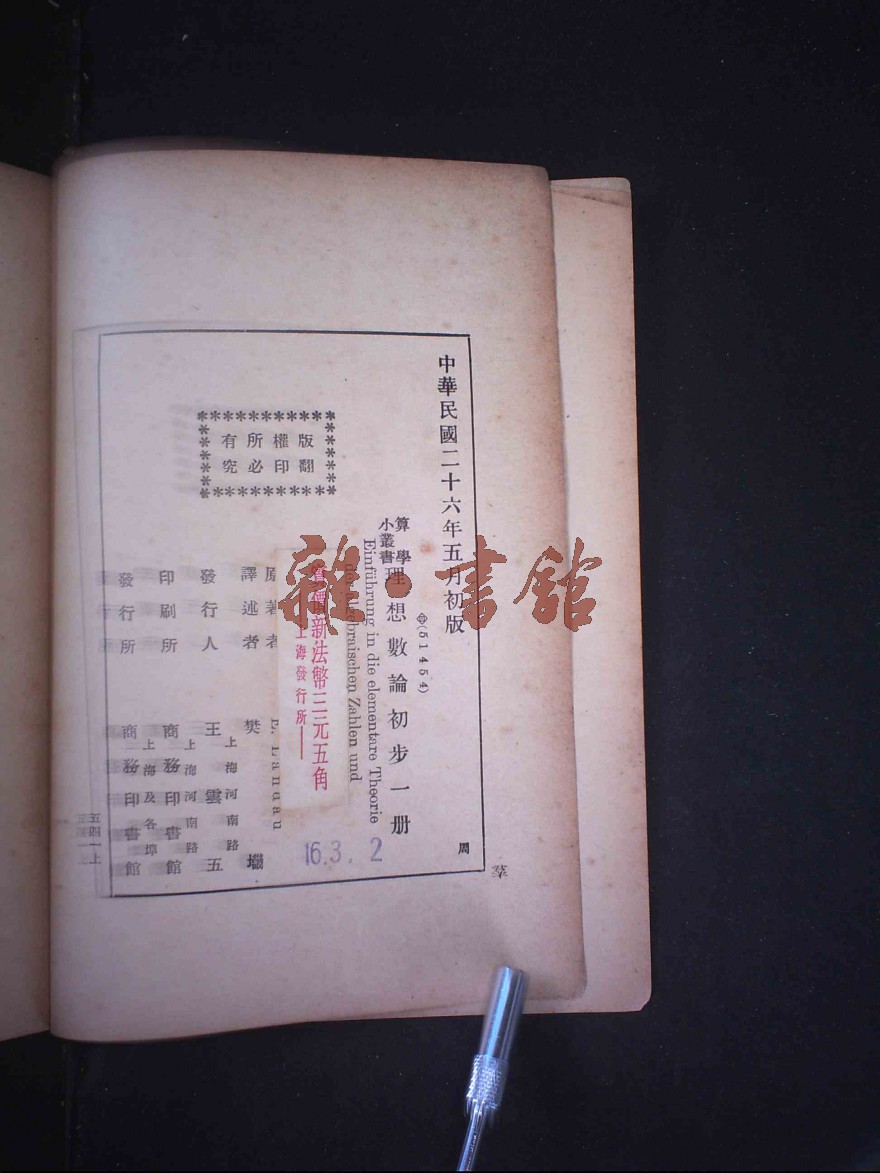 中華民國二十六年五月初版
㊥(51454)
算學
小叢書
理想數論初步一册
Einführung in die elementare Theorie
braischen Zahlen und
版權所有
翻印必究
新法幣三元五角
上海發行所
原著者 E. Landau
譯述者 樊
發行人 王雲五
上海河南路
印刷所 商務印書館
上海河南路
發行所 商務印書館
上海及各埠
16.3. 2
周
五四一上
雜·書館